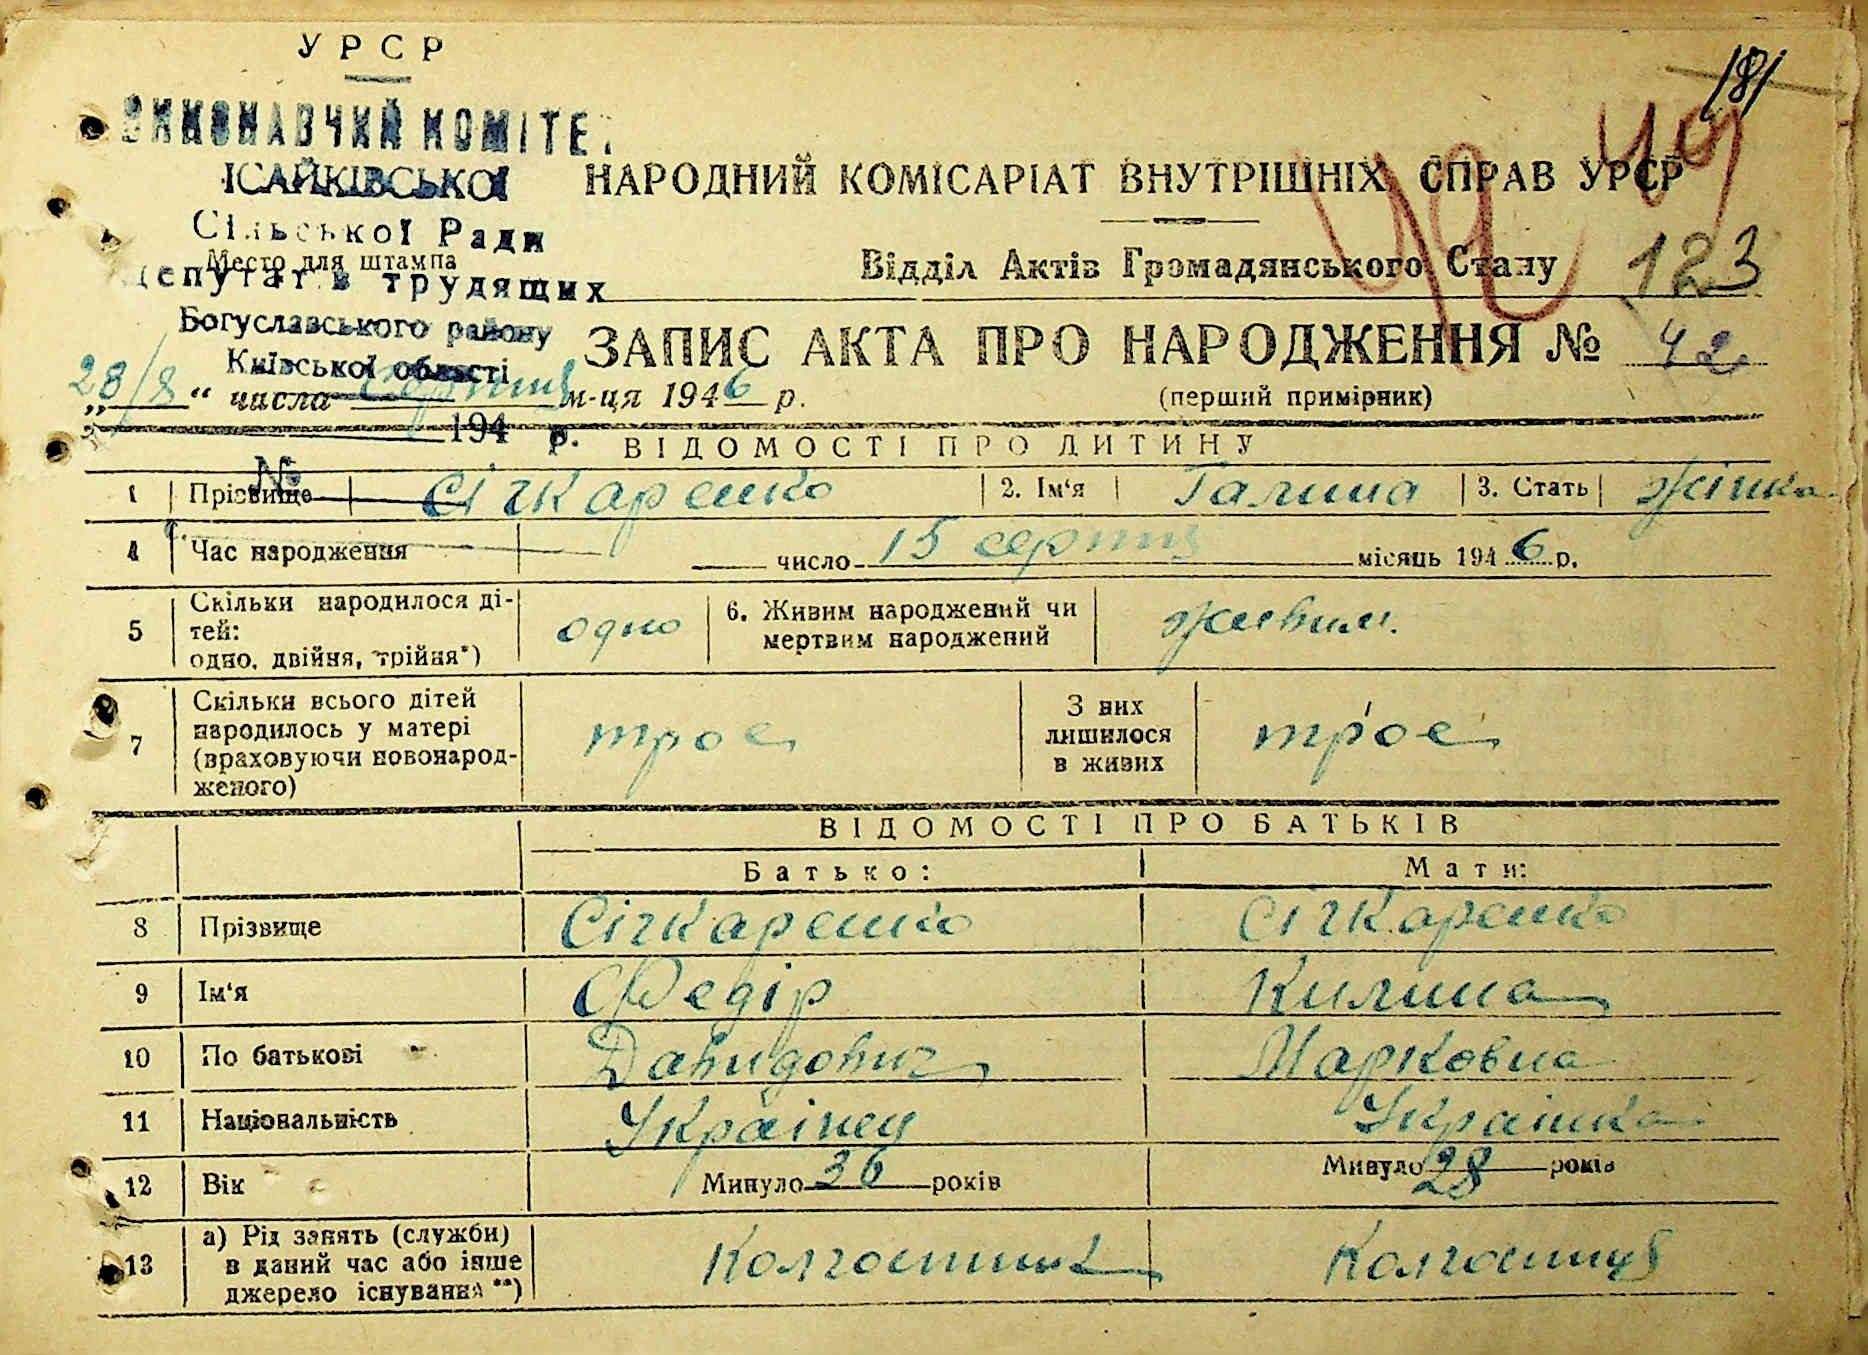 УРСР
181
49
ВИКОНАВЧИЙ КОМІТЕ
ІСАЙКІВСЬКОЇ
НАРОДНИЙ КОМІСАРІАТ ВНУТРІШНІХ СПРАВ УРСР
Сільської Ради
Место для штампа
Депутатів трудящих
Відділ Актів Громадянського Стану
123
Богуславського району
Київської області
ЗАПИС АКТА ПРО НАРОДЖЕННЯ № 42
„28/8“ числа серпня м-ця 1946 р.
(перший примірник)
194 р.
№
ВІДОМОСТІ ПРО ДИТИНУ
1 Прізвище Січкаренко 2. Ім‘я Галина 3. Стать жінка
4 Час народження число 15 серпня місяць 1946 р.
5 Скільки народилося ді-
тей:
одно, двійня, трійня*)
одно
6. Живим народжений чи
мертвим народжений
живим.
7 Скільки всього дітей
народилось у матері
(враховуючи новонарод-
женого)
троє
З них
лишилося
в живих
троє
ВІДОМОСТІ ПРО БАТЬКІВ
Батько: Мати:
8 Прізвище Січкаренко Січкаренко
9 Ім‘я Федір Килина
10 По батькові Давидович Марковна
11 Національність Українец Українка
12 Вік Минуло 36 років Минуло 28 років
13 а) Рід занять (служби)
в даний час або інше
джерело існування **)
Колгоспник Колгоспниця